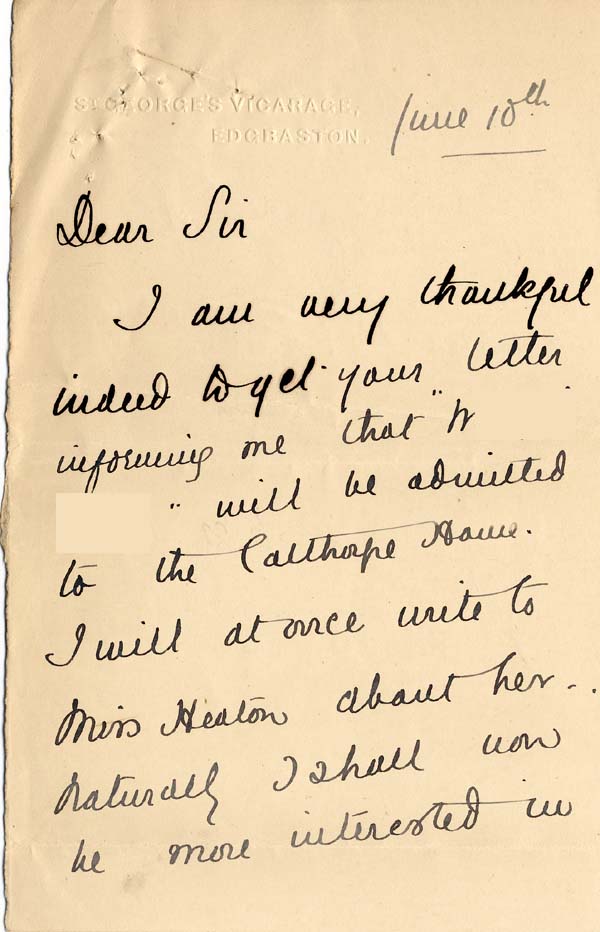 ST GEORGE'S VICARAGE,
EDGBASTON.
June 10th
Dear Sir
I am very thankful
indeed to get your letter
informing me that "W
" will be admitted
to the Calthorpe Home.
I will at once write to
Miss Heaton about her.
Naturally I shall now
be more interested in